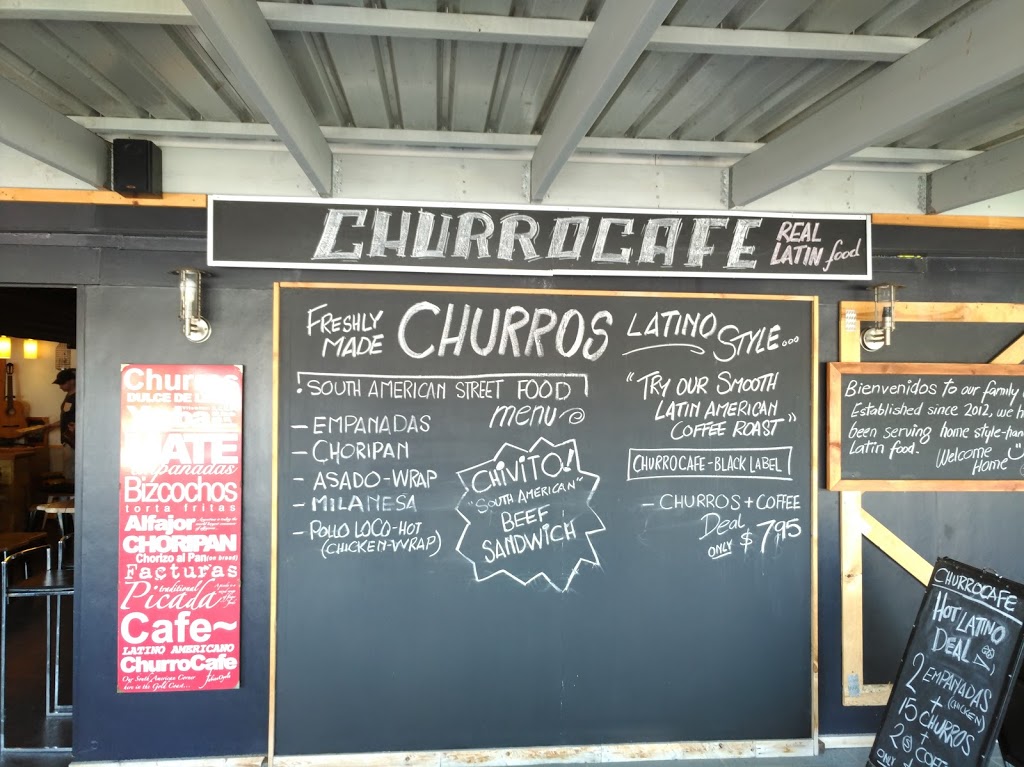 CHURROCAFE REAL
LATIN food
FRESHLY
MADE CHURROS LATINO
STYLE...
! SOUTH AMERICAN STREET FOOD
menu
- EMPANADAS
- CHORIPAN
- ASADO-WRAP
- MILANESA
- POLLO LOCO-HOT
(CHICKEN-WRAP)
CHIVITO!
"SOUTH AMERICAN"
BEEF
SANDWICH
"TRY OUR SMOOTH
LATIN AMERICAN
COFFEE ROAST"
CHURROCAFE-BLACK LABEL
- CHURROS + COFFEE
Deal
ONLY $7,95
Churros
DULCE DE
MATE
empanadas
Bizcochos
torta fritas
Alfajor
CHORIPAN
Chorizo al Pan (on bread)
Facturas
traditional
Picada
Cafe~
LATINO AMERICANO
ChurroCafe
Our South American Corner
here in the Gold Coast...
Bienvenidos to our family
Established since 2012, we
been serving home style
Latin food. Welcome
Home
CHURROCAFE
HOT LATINO
DEAL
2 EMPANADAS
(CHICKEN)
+
15 CHURROS
+
2
ONLY